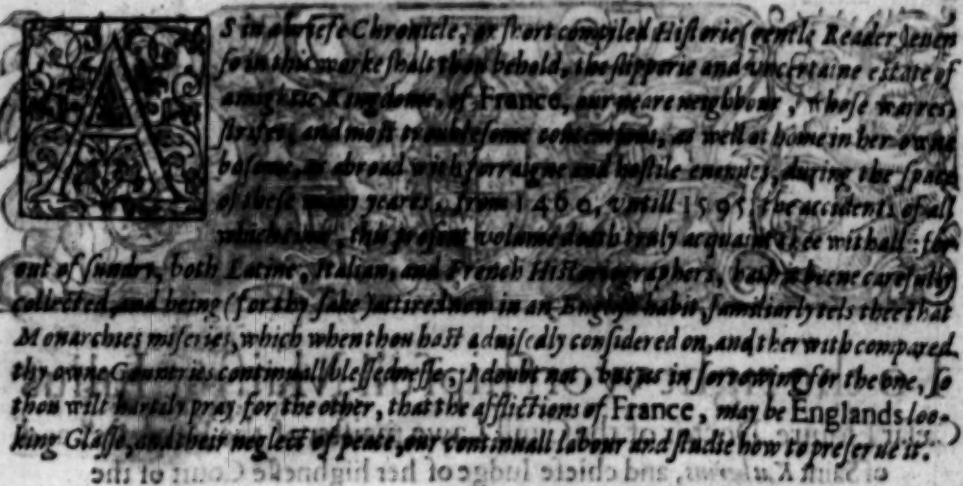 AS in a briefe Chronicle, or short compiled Historie (gentle Reader) euen
so in this worke shalt thou behold, the slipperie and vncertaine estate of
a mightie Kingdome, of France, our neare neighbour, whose warres,
strifes, and most troublesome contentions, as well at home in her owne
bosome, as abroad with forraigne and hostile enemies, during the space
of these many yeares, from 1460, vntill 1595, the accidents of all
which time, this present volume doth truly acquaint thee withall: for
out of sundry, both Latine, Italian, and French Historiographers, hath it beene carefully
collected, and being (for thy sake) attired now in an English habit, familiarly tels thee that
Monarchies miseries, which when thou hast aduisedly considered on, and therwith compared
thy owne Countries continuall blessednesse, I doubt not, but as in sorrowing for the one, so
thou wilt hartily pray for the other, that the afflictions of France, may be Englands loo-
king Glasse, and their neglect of peace, our continuall labour and studie how to preserue it.